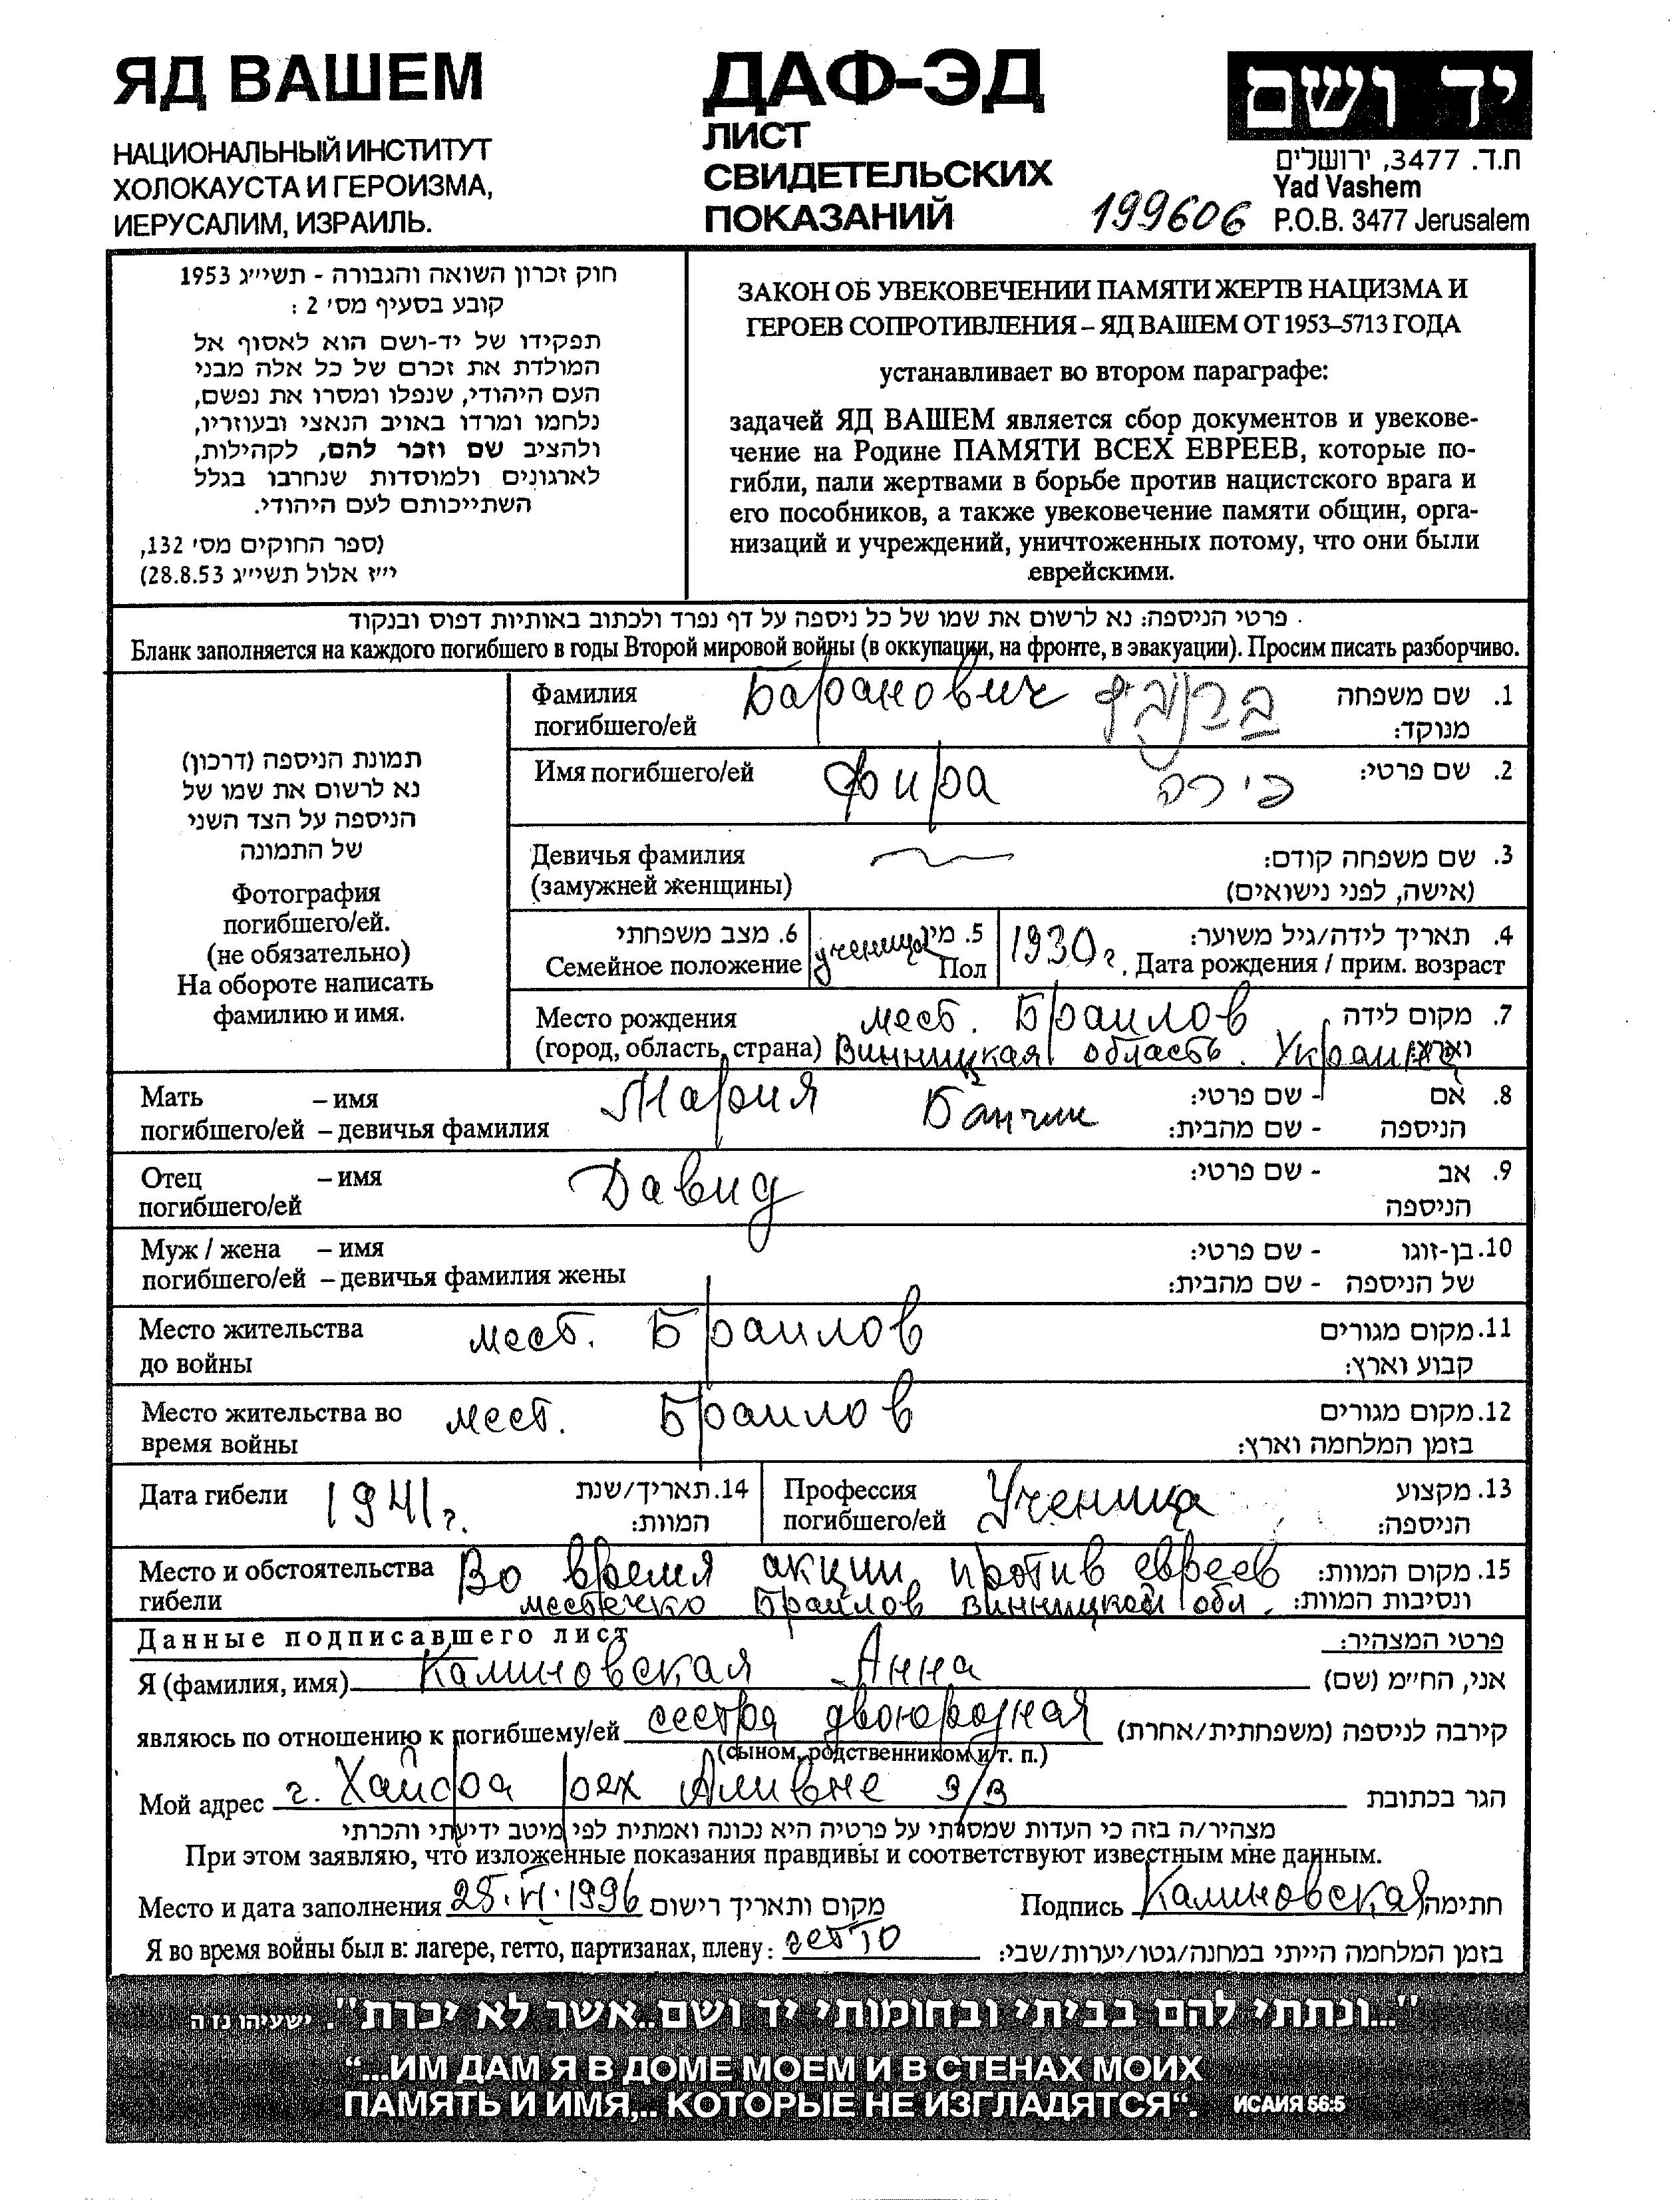 ЯД ВАШЕМ
НАЦИОНАЛЬНЫЙ ИНСТИТУТ
ХОЛОКАУСТА И ГЕРОИЗМА,
ИЕРУСАЛИМ, ИЗРАИЛЬ.
ДАФ-ЭД
ЛИСТ
СВИДЕТЕЛЬСКИХ
ПОКАЗАНИЙ
199606
יד ושם
ת.ד. 3477, ירושלים
Yad Vashem
P.O.B. 3477 Jerusalem
חוק זכרון השואה והגבורה - תשי״ג 1953
קובע בסעיף מס׳ 2 :
תפקידו של יד-ושם הוא לאסוף אל
המולדת את זכרם של כל אלה מבני
העם היהודי, שנפלו ומסרו את נפשם,
נלחמו ומרדו באויב הנאצי ובעוזריו,
ולהציב שם וזכר להם, לקהילות,
לארגונים ולמוסדות שנחרבו בגלל
השתייכותם לעם היהודי.
(ספר החוקים מס׳ 132,
י״ז אלול תשי״ג 28.8.53)
ЗАКОН ОБ УВЕКОВЕЧЕНИИ ПАМЯТИ ЖЕРТВ НАЦИЗМА И
ГЕРОЕВ СОПРОТИВЛЕНИЯ – ЯД ВАШЕМ ОТ 1953–5713 ГОДА
устанавливает во втором параграфе:
задачей ЯД ВАШЕМ является сбор документов и увекове-
чение на Родине ПАМЯТИ ВСЕХ ЕВРЕЕВ, которые по-
гибли, пали жертвами в борьбе против нацистского врага и
его пособников, а также увековечение памяти общин, орга-
низаций и учреждений, уничтоженных потому, что они были
еврейскими.
פרטי הניספה: נא לרשום את שמו של כל ניספה על דף נפרד ולכתוב באותיות דפוס ובנקוד
Бланк заполняется на каждого погибшего в годы Второй мировой войны (в оккупации, на фронте, в эвакуации). Просим писать разборчиво.
תמונת הניספה (דרכון)
נא לרשום את שמו של
הניספה על הצד השני
של התמונה
Фотография
погибшего/ей.
(не обязательно)
На обороте написать
фамилию и имя.
Фамилия Баранович ברנוביץ 1. שם משפחה
погибшего/ей מנוקד:
Имя погибшего/ей Фира פירה 2. שם פרטי:
Девичья фамилия 3. שם משפחה קודם:
(замужней женщины) (אישה, לפני נישואים)
6. מצב משפחתי
Семейное положение
ученица 5. מין
Пол
1930 г. 4. תאריך לידה/גיל משוער:
Дата рождения / прим. возраст
Место рождения мест. Браилов 7. מקום לידה
(город, область, страна) Винницкая область. Украина וארץ:
Мать – имя Мария Банчик 8. אם - שם פרטי:
погибшего/ей – девичья фамилия הניספה - שם מהבית:
Отец – имя Давид 9. אב - שם פרטי:
погибшего/ей הניספה
Муж / жена – имя 10. בן-זוגו - שם פרטי:
погибшего/ей – девичья фамилия жены של הניספה - שם מהבית:
Место жительства мест. Браилов 11. מקום מגורים
до войны קבוע וארץ:
Место жительства во мест. Браилов 12. מקום מגורים
время войны בזמן המלחמה וארץ:
Дата гибели 1941 г. 14. תאריך/שנת
המוות:
Профессия Ученица 13. מקצוע
погибшего/ей הניספה:
Место и обстоятельства Во время акции против евреев 15. מקום המוות:
гибели местечко Браилов Винницкой обл. ונסיבות המוות:
Данные подписавшего лист פרטי המצהיר:
Я (фамилия, имя) Калиновская Анна אני, הח״מ (שם)
являюсь по отношению к погибшему/ей сестра двоюродная קירבה לניספה (משפחתית/אחרת)
(сыном, родственником и т. п.)
Мой адрес г. Хайфа рех Аливне 3/3 הגר בכתובת
מצהיר/ה בזה כי העדות שמסרתי על פרטיה היא נכונה ואמתית לפי מיטב ידיעתי והכרתי
При этом заявляю, что изложенные показания правдивы и соответствуют известным мне данным.
Место и дата заполнения 25.VI.1996 מקום ותאריך רישום Подпись Калиновская חתימה
Я во время войны был в: лагере, гетто, партизанах, плену: гетто בזמן המלחמה הייתי במחנה/גטו/יערות/שבי:
"...ונתתי להם בביתי ובחומותי יד ושם..אשר לא יכרת". ישעיהו נו ה
“...ИМ ДАМ Я В ДОМЕ МОЕМ И В СТЕНАХ МОИХ
ПАМЯТЬ И ИМЯ,.. КОТОРЫЕ НЕ ИЗГЛАДЯТСЯ“. ИСАИЯ 56:5